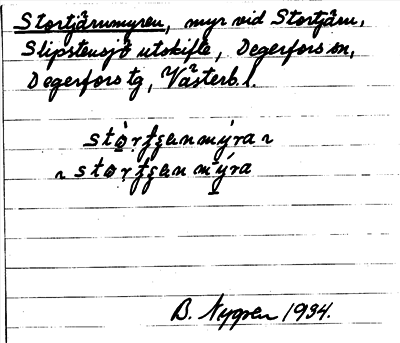 Stortjärnmyren, myr vid Stortjärn,
Slipstensjö utskifte, Degerfors sn,
Degerfors tg, Västerb. l.
B. Nygren 1934.